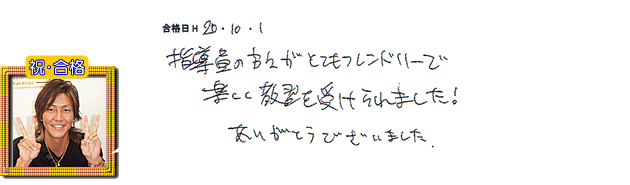 合格日 H 20・10・1
祝・合格
指導員の方々がとてもフレンドリーで
楽しく教習を受けられました!
ありがとうございました.